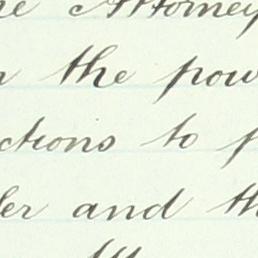 he Attorney
the pow
ctions to p
der and th